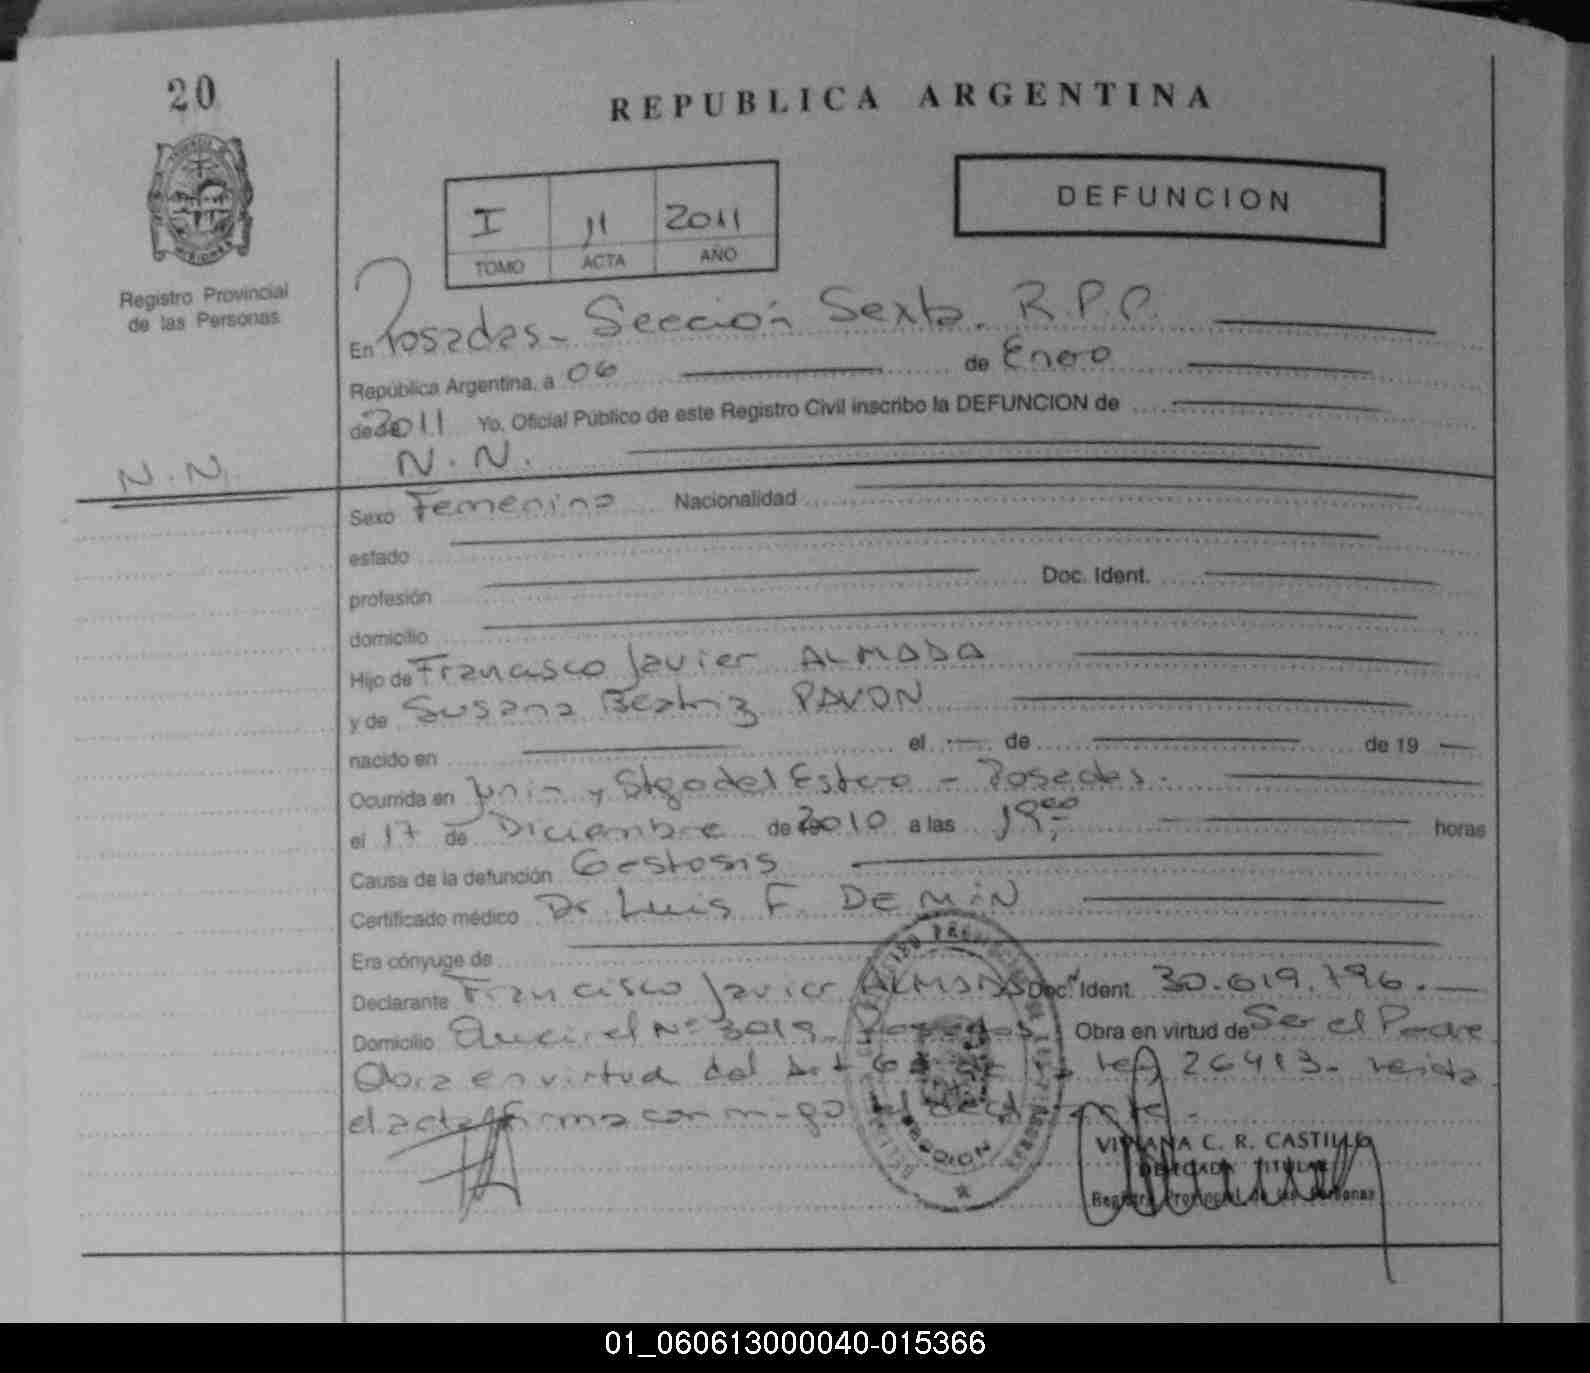 20
REPUBLICA ARGENTINA
I 11 2011
TOMO ACTA AÑO
DEFUNCION
Registro Provincial
de las Personas
En Posadas - Sección Sexta. R.P.P.
República Argentina, a 06 de Enero
de 2011 Yo, Oficial Público de este Registro Civil inscribo la DEFUNCION de
N.N. N.N.
Sexo Femenino Nacionalidad
estado
profesión Doc. Ident.
domicilio
Hijo de Francisco Javier ALMADA
y de Susana Beatriz PAVON
nacido en el de de 19
Ocurrida en Junin y Stgo del Estero - Posadas.
el 17 de Diciembre de 2010 a las horas
Causa de la defunción Gestosis
Certificado médico Dr. Luis F. DEMIN
Era cónyuge de
Declarante Francisco Javier ALMADA Doc. Ident. 30.619.796.
Domicilio Nº 3019 - Posadas Obra en virtud de Ser el Padre
Obra en virtud del Art 26413. leida
el acta firma conmigo el declarante.
VIVIANA C. R. CASTILLO
DELEGADA TITULAR
Registro Provincial de las Personas
01_060613000040-015366